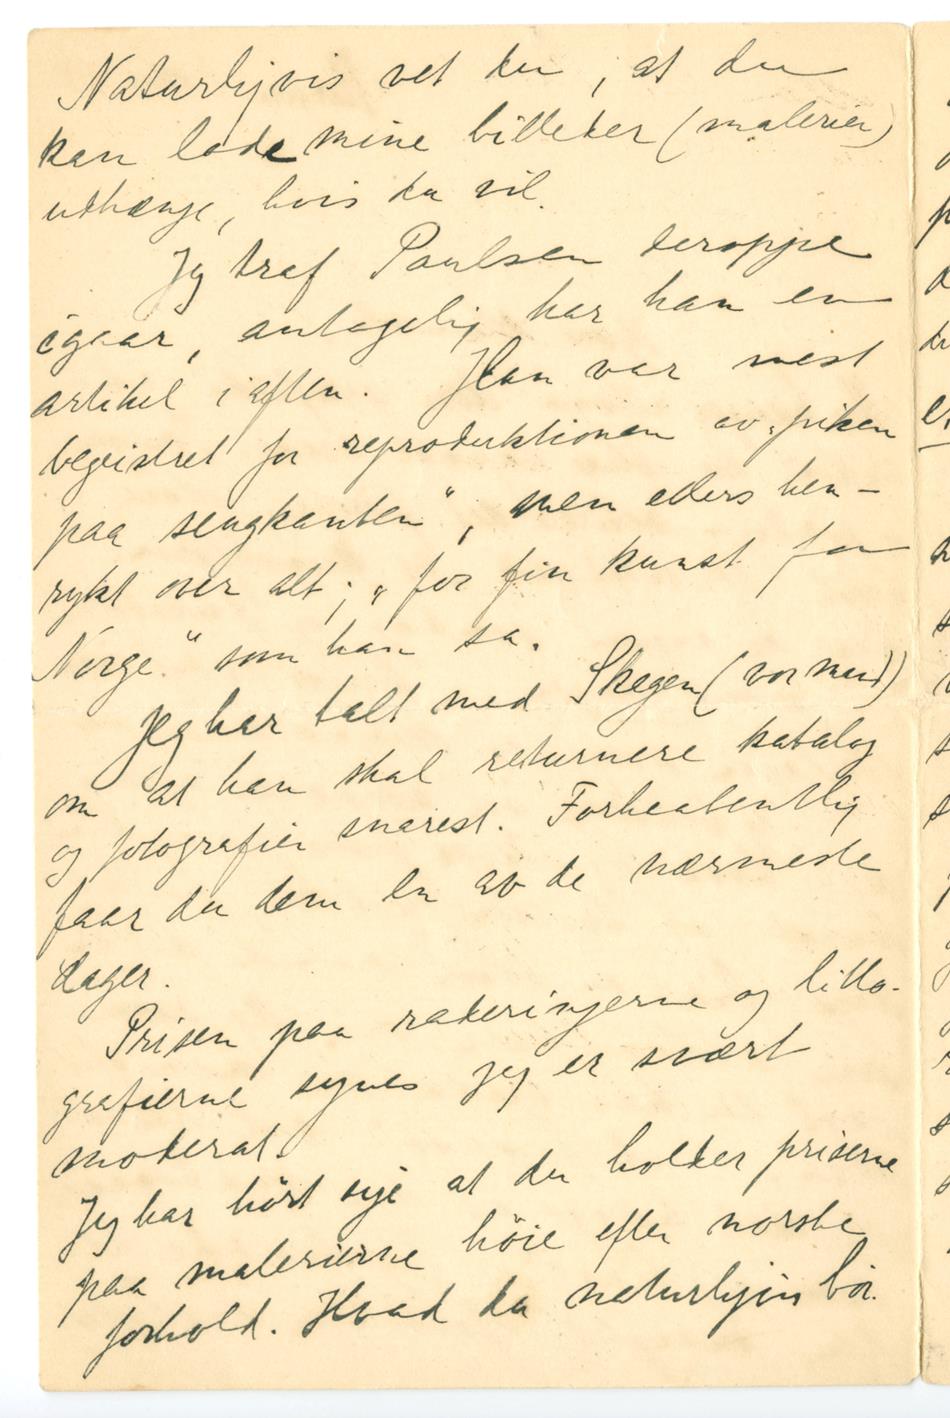 Naturligvis vet du, at du
kan lade mine billeder (malerier)
uthænge, hvis du vil.
Jeg traf Paulsen deroppe
igaar, antagelig har han en
artikel i aften. Han var mest
begeistret for reproduktionen av „piken
paa sengkanten“, men ellers hen-
rykt over alt; „for fin kunst for
Norge.“ som han sa.
Jeg har talt med Skegen (vor mand)
om at han skal returnere katalog
og fotografier snarest. Forhaabentlig
faar du dem en av de nærmeste
dager.
Prisen paa raderingerne og litto-
grafierne synes jeg er svært
moderat.
Jeg har hørt sige at du holder priserne
paa malerierne høie efter norske
forhold. Hvad du naturligvis bør.